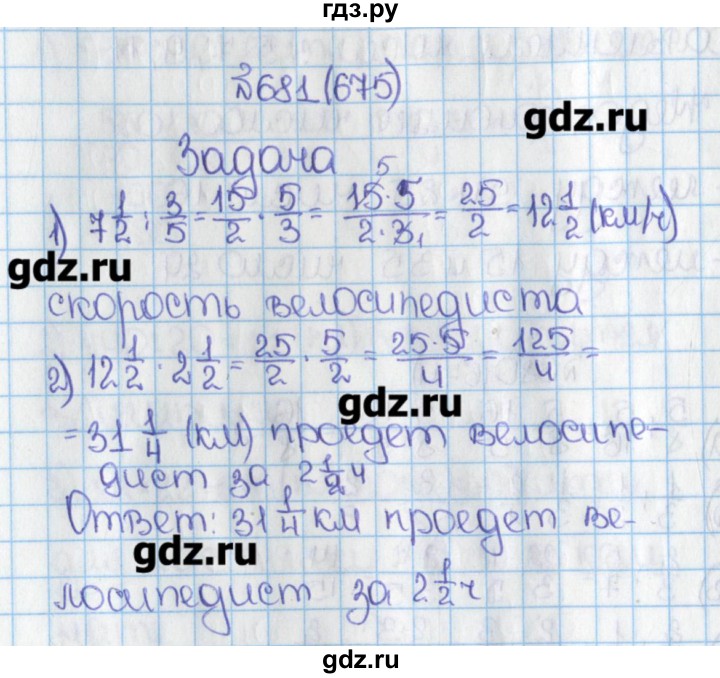 гдз.ру
№681(675)
gdz.ru
Задача
1) 7 1/2 : 3/5 = 15/2 · 5/3 = 15·5/2·3 = 25/2 = 12 1/2 (км/ч)
5
1
gdz.ru
скорость велосипедиста
2) 12 1/2 · 2 1/2 = 25/2 · 5/2 = 25·5/4 = 125/4 =
gdz.ru
= 31 1/4 (км) проедет велосипе-
дист за 2 1/2 ч
Ответ: 31 1/4 км проедет ве-
gdz.ru
лосипедист за 2 1/2 ч
gdz.ru